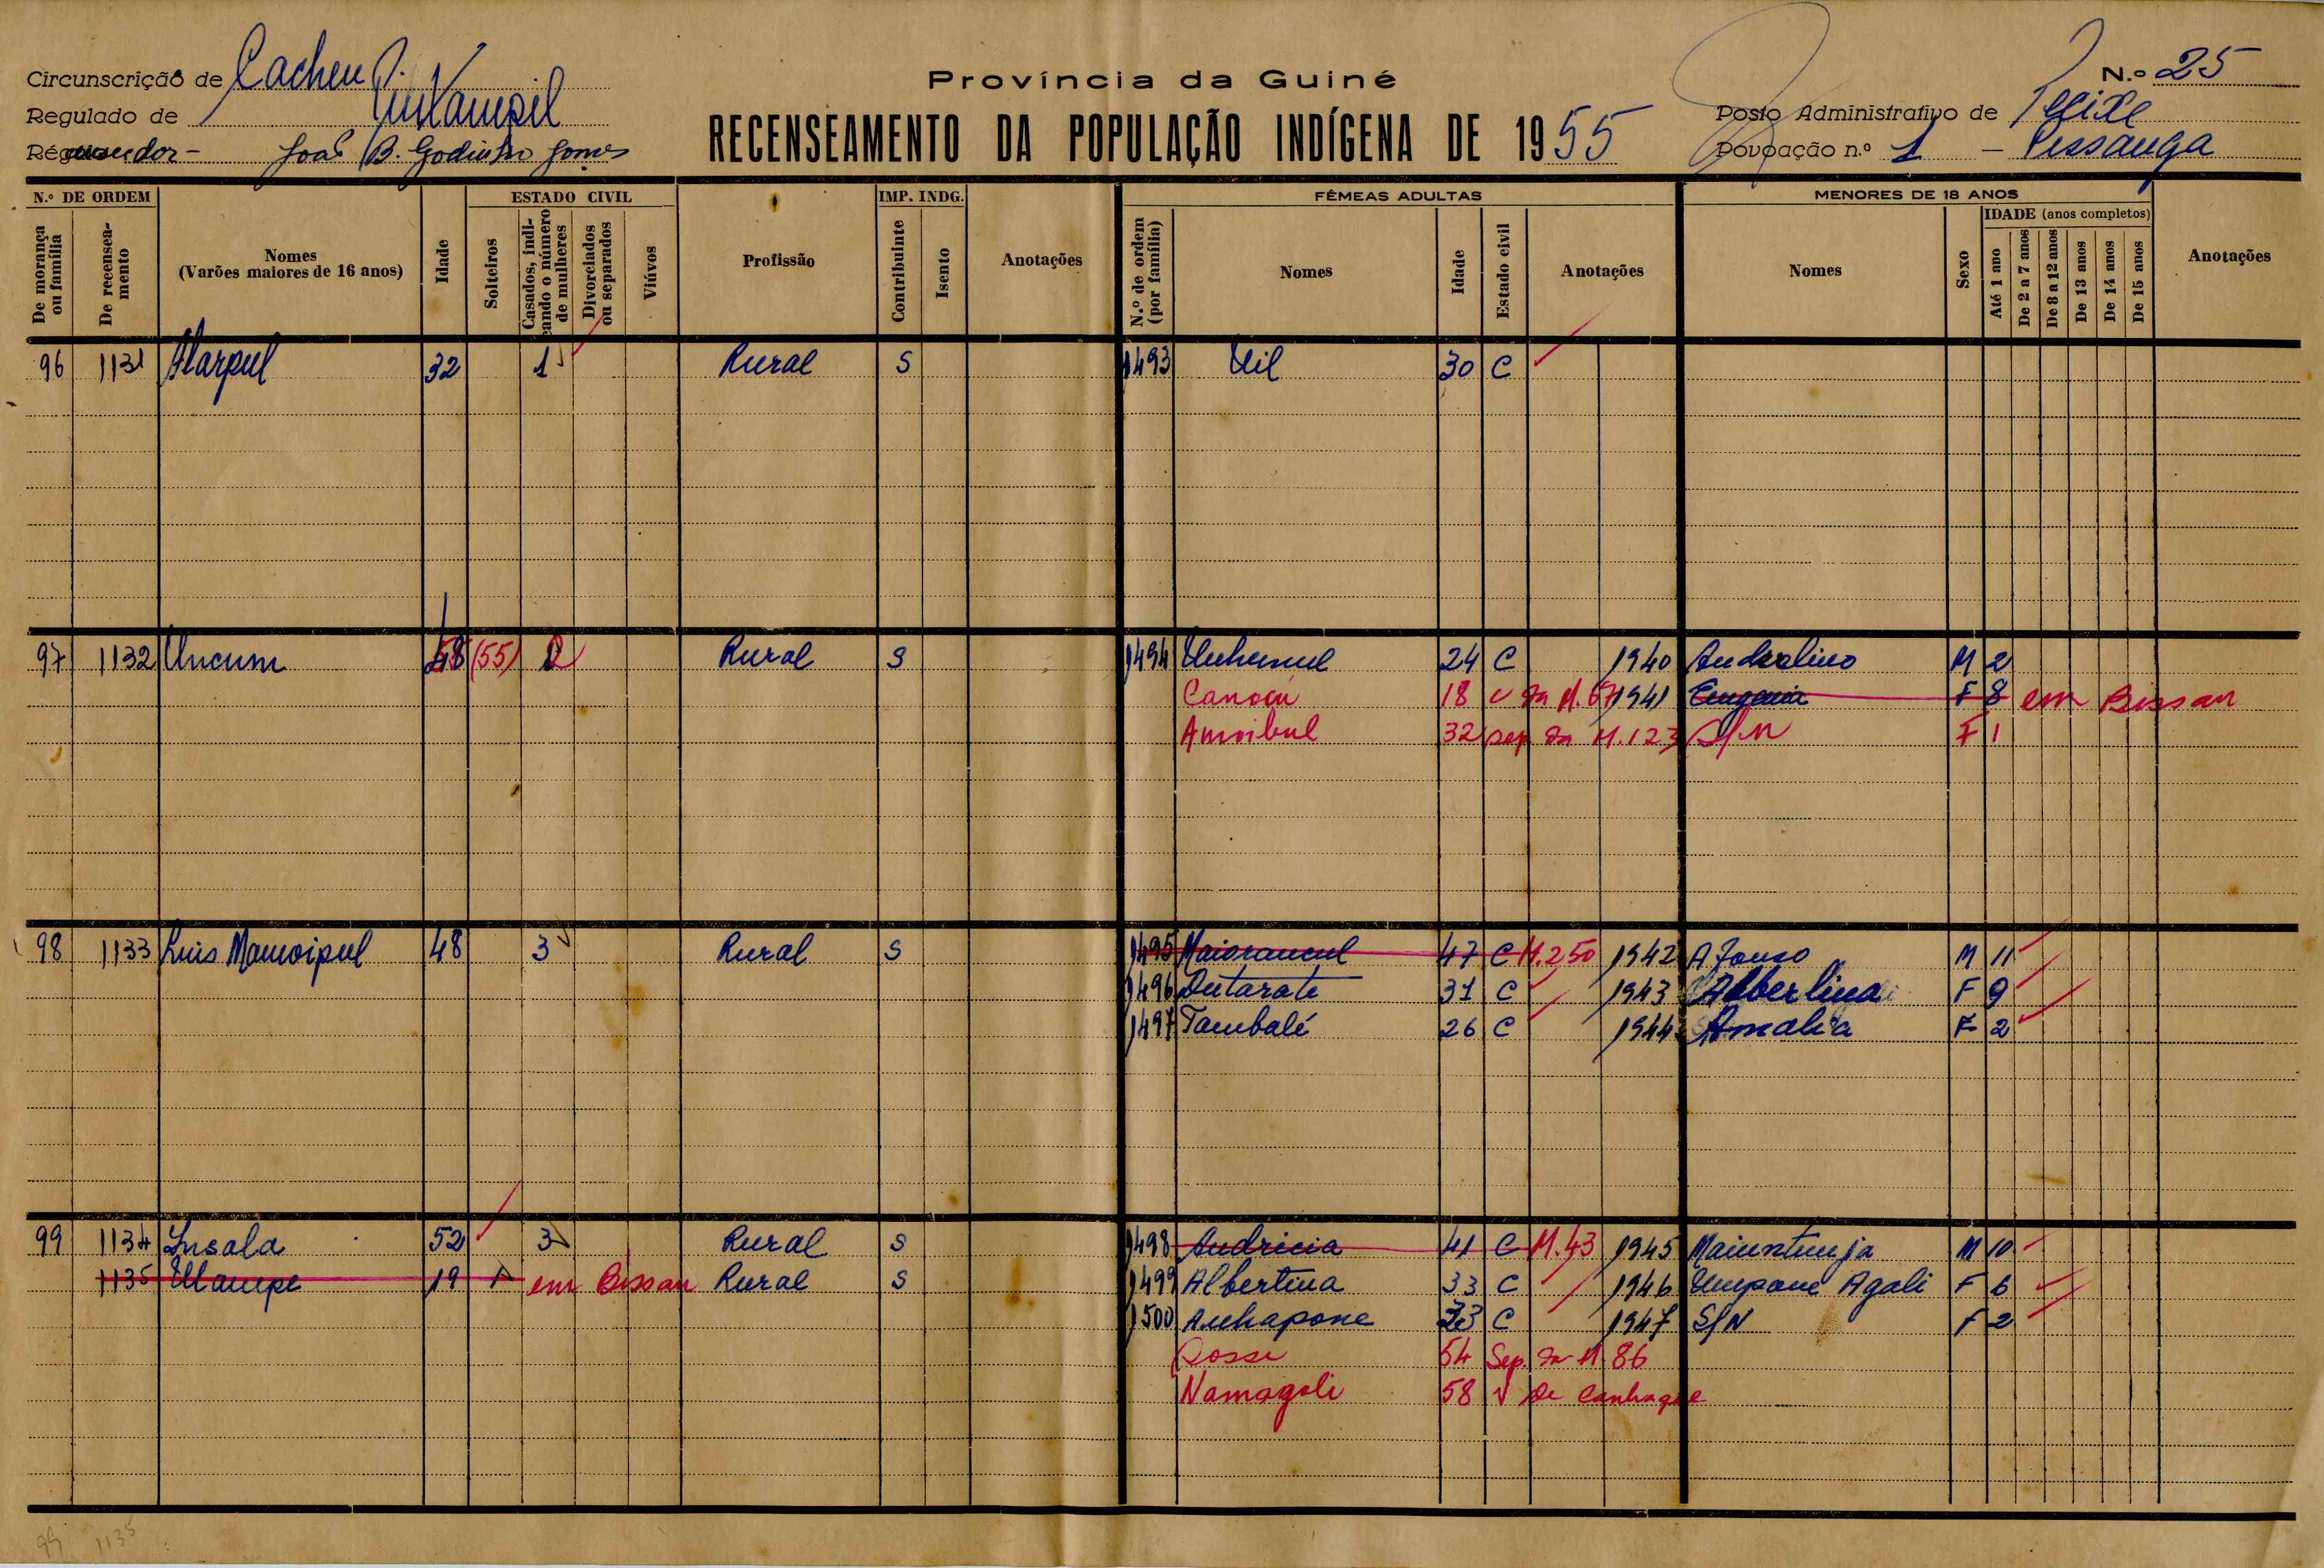 Circunscrição de Cacheu
Província da Guiné
N.º 25
Regulado de
RECENSEAMENTO DA POPULAÇÃO INDÍGENA DE 1955
Posto Administrativo de
João B. Godinho Gomes
Povoação n.º 1 - Pessanga
N.º DE ORDEM
De morança ou família
De recenseamento
Nomes
(Varões maiores de 16 anos)
Idade
ESTADO CIVIL
Solteiros
Casados, indicando o número de mulheres
Divorciados ou separados
Viúvos
Profissão
IMP. INDG.
Contribuinte
Isento
Anotações
FÊMEAS ADULTAS
N.º de ordem (por família)
Nomes
Idade
Estado civil
Anotações
MENORES DE 18 ANOS
Nomes
Sexo
IDADE (anos completos)
Até 1 ano
De 2 a 7 anos
De 8 a 12 anos
De 13 anos
De 14 anos
De 15 anos
Anotações
96 1131 32 1 Rural S 1493 Uil 30 C
97 1132 Uncum 48 (55) Rural S 1494 24 C 1940 Andrelino M 2
18 da M. 67 1941 Eugenia F 8 em Bissau
32 sep da M. 123 S/N F 1
98 1133 Luis Mamoipul 48 3 Rural S 1495 47 C M. 250 1942 Afonso M 11
1496 31 C 1943 Albertina F 9
1497 Tambalé 26 C 1944 Amalia F 2
99 1134 Insala 52 3 Rural S 1498 Andricia 41 C M. 43 1945 M 10
1135 19 em Bissau Rural S 1499 Albertina 33 C 1946 Umpane Agali F 6
1500 Anhapone 33 C 1947 S/N F 2
54 Sep. da M. 86
Namagoli 58 V de Canhaque
99 1135